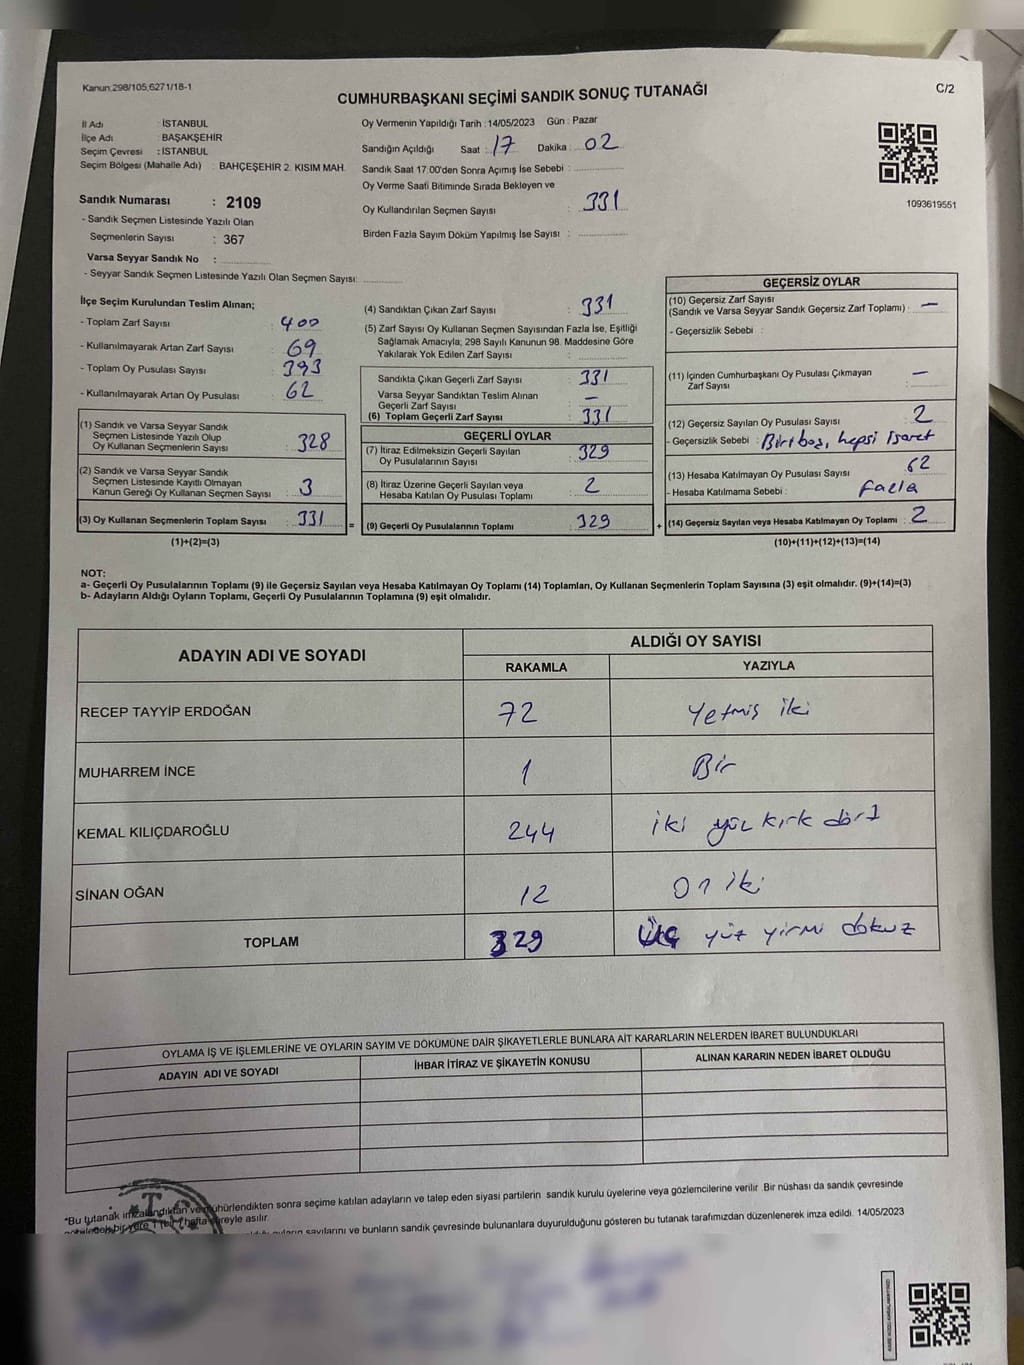 Kanun:298/105;6271/18-1
C/2
CUMHURBAŞKANI SEÇİMİ SANDIK SONUÇ TUTANAĞI
İl Adı : İSTANBUL
İlçe Adı : BAŞAKŞEHİR
Seçim Çevresi : İSTANBUL
Seçim Bölgesi (Mahalle Adı) : BAHÇEŞEHİR 2. KISIM MAH.
Sandık Numarası : 2109
- Sandık Seçmen Listesinde Yazılı Olan
Seçmenlerin Sayısı : 367
Varsa Seyyar Sandık No :
- Seyyar Sandık Seçmen Listesinde Yazılı Olan Seçmen Sayısı:
Oy Vermenin Yapıldığı Tarih : 14/05/2023 Gün : Pazar
Sandığın Açıldığı Saat : 17 Dakika : 02
Sandık Saat 17:00'den Sonra Açımış İse Sebebi :
Oy Verme Saati Bitiminde Sırada Bekleyen ve
Oy Kullandırılan Seçmen Sayısı : 331
Birden Fazla Sayım Döküm Yapılmış İse Sayısı :
1093619551
İlçe Seçim Kurulundan Teslim Alınan;
- Toplam Zarf Sayısı : 400
- Kullanılmayarak Artan Zarf Sayısı : 69
- Toplam Oy Pusulası Sayısı : 393
- Kullanılmayarak Artan Oy Pusulası : 62
(1) Sandık ve Varsa Seyyar Sandık
Seçmen Listesinde Yazılı Olup
Oy Kullanan Seçmenlerin Sayısı : 328
(2) Sandık ve Varsa Seyyar Sandık
Seçmen Listesinde Kayıtlı Olmayan
Kanun Gereği Oy Kullanan Seçmen Sayısı : 3
(3) Oy Kullanan Seçmenlerin Toplam Sayısı : 331 =
(1)+(2)=(3)
(4) Sandıktan Çıkan Zarf Sayısı : 331
(5) Zarf Sayısı Oy Kullanan Seçmen Sayısından Fazla İse, Eşitliği
Sağlamak Amacıyla; 298 Sayılı Kanunun 98. Maddesine Göre
Yakılarak Yok Edilen Zarf Sayısı :
Sandıkta Çıkan Geçerli Zarf Sayısı : 331
Varsa Seyyar Sandıktan Teslim Alınan
Geçerli Zarf Sayısı : –
(6) Toplam Geçerli Zarf Sayısı : 331
GEÇERLİ OYLAR
(7) İtiraz Edilmeksizin Geçerli Sayılan
Oy Pusulalarının Sayısı : 329
(8) İtiraz Üzerine Geçerli Sayılan veya
Hesaba Katılan Oy Pusulası Toplamı : 2
(9) Geçerli Oy Pusulalarının Toplamı : 329 +
GEÇERSİZ OYLAR
(10) Geçersiz Zarf Sayısı
(Sandık ve Varsa Seyyar Sandık Geçersiz Zarf Toplamı) : –
- Geçersizlik Sebebi :
(11) İçinden Cumhurbaşkanı Oy Pusulası Çıkmayan
Zarf Sayısı : –
(12) Geçersiz Sayılan Oy Pusulası Sayısı : 2
- Geçersizlik Sebebi : Biri boş, hepsi işaret
(13) Hesaba Katılmayan Oy Pusulası Sayısı : 62
- Hesaba Katılmama Sebebi : fazla
(14) Geçersiz Sayılan veya Hesaba Katılmayan Oy Toplamı : 2
(10)+(11)+(12)+(13)=(14)
NOT:
a- Geçerli Oy Pusulalarının Toplamı (9) ile Geçersiz Sayılan veya Hesaba Katılmayan Oy Toplamı (14) Toplamları, Oy Kullanan Seçmenlerin Toplam Sayısına (3) eşit olmalıdır. (9)+(14)=(3)
b- Adayların Aldığı Oyların Toplamı, Geçerli Oy Pusulalarının Toplamına (9) eşit olmalıdır.
ADAYIN ADI VE SOYADI
ALDIĞI OY SAYISI
RAKAMLA YAZIYLA
RECEP TAYYİP ERDOĞAN 72 Yetmiş iki
MUHARREM İNCE 1 Bir
KEMAL KILIÇDAROĞLU 244 iki yüz kırk dört
SİNAN OĞAN 12 On iki
TOPLAM 329 Üç yüz yirmi dokuz
OYLAMA İŞ VE İŞLEMLERİNE VE OYLARIN SAYIM VE DÖKÜMÜNE DAİR ŞİKAYETLERLE BUNLARA AİT KARARLARIN NELERDEN İBARET BULUNDUKLARI
ADAYIN ADI VE SOYADI İHBAR İTİRAZ VE ŞİKAYETİN KONUSU ALINAN KARARIN NEDEN İBARET OLDUĞU
T.C.
*Bu tutanak imzalandıktan ve mühürlendikten sonra seçime katılan adayların ve talep eden siyasi partilerin sandık kurulu üyelerine veya gözlemcilerine verilir. Bir nüshası da sandık çevresinde
bir yere 1 (bir) hafta süreyle asılır.
sayılarını ve bunların sandık çevresinde bulunanlara duyurulduğunu gösteren bu tutanak tarafımızdan düzenlenerek imza edildi. 14/05/2023